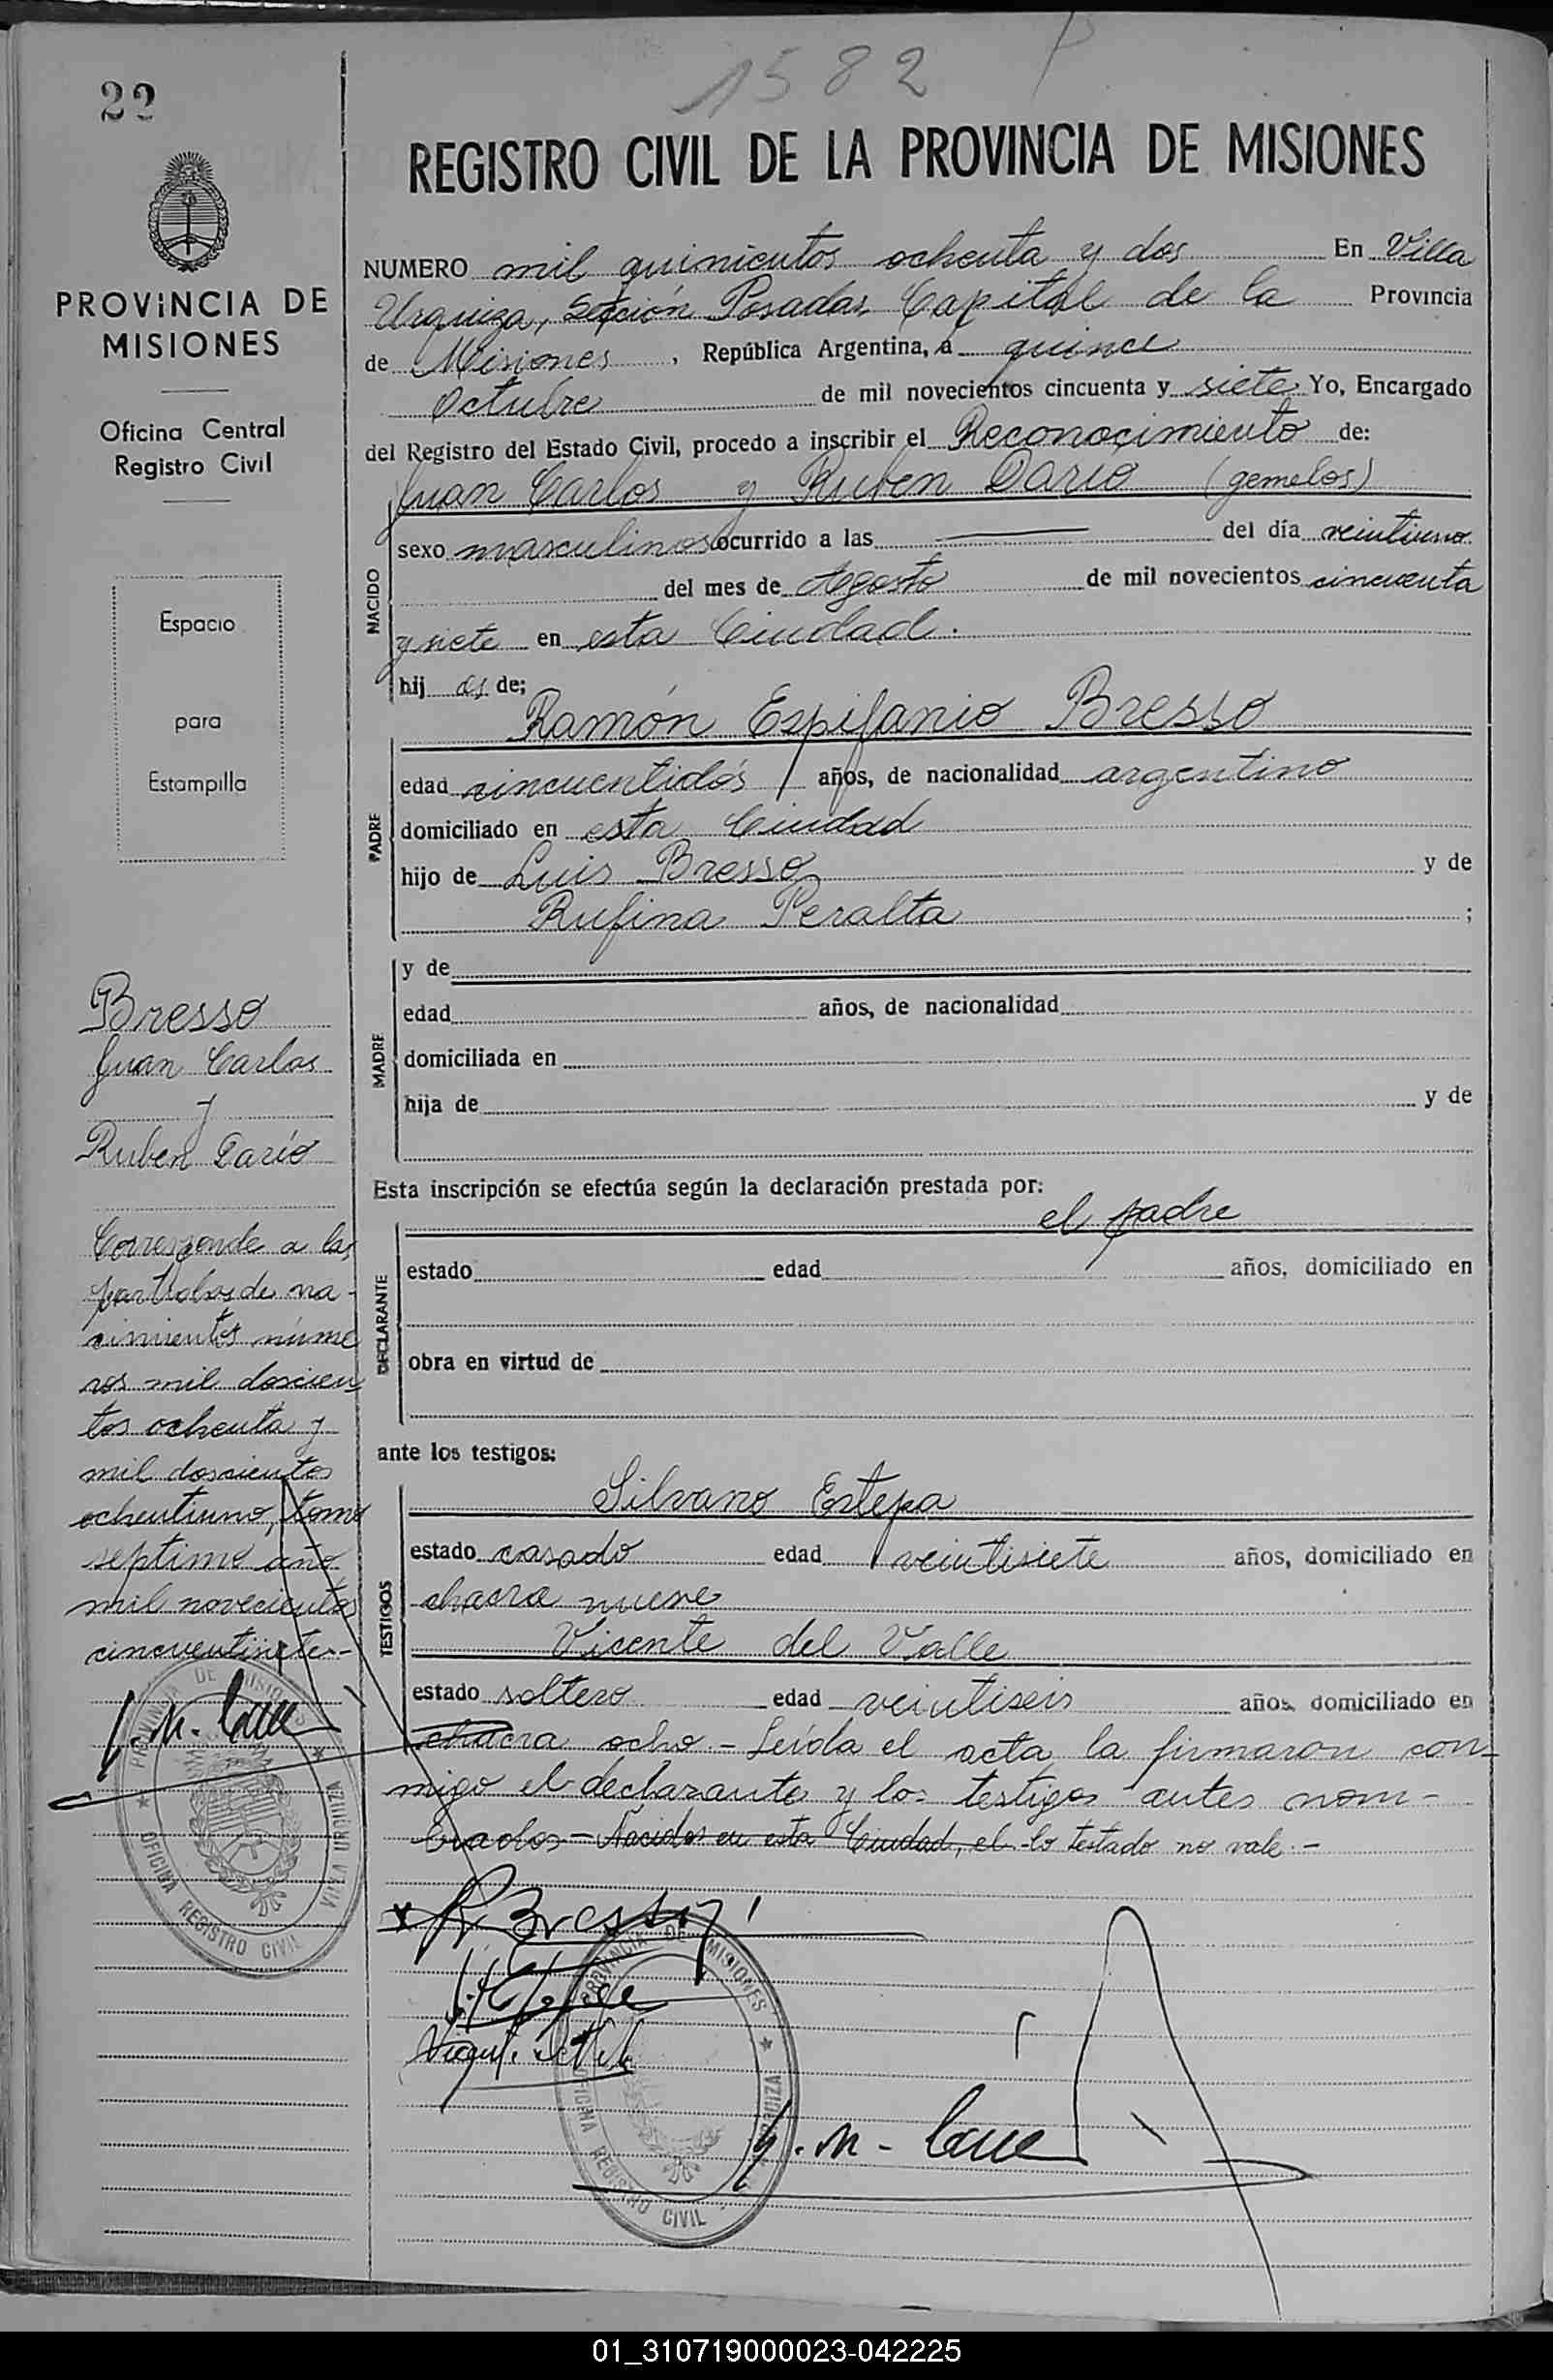 1582
22
REGISTRO CIVIL DE LA PROVINCIA DE MISIONES
PROVINCIA DE
MISIONES
Oficina Central
Registro Civil
Espacio
para
Estampilla
NUMERO mil quinientos ochenta y dos En Villa
Urquiza, Sección Posadas, Capital de la Provincia
de Misiones, República Argentina, a quince
Octubre de mil novecientos cincuenta y siete Yo, Encargado
del Registro del Estado Civil, procedo a inscribir el Reconocimiento de:
Juan Carlos y Ruben Dario (gemelos)
NACIDO
sexo masculinos ocurrido a las — del día veintiuno
del mes de Agosto de mil novecientos cincuenta
y siete en esta Ciudad.
hij os de;
Ramón Espifanio Bresso
PADRE
edad cincuentidós años, de nacionalidad argentino
domiciliado en esta Ciudad
hijo de Luis Bresso y de
Rufina Peralta ;
MADRE
y de
edad años, de nacionalidad
domiciliada en
hija de y de
Esta inscripción se efectúa según la declaración prestada por:
el padre
DECLARANTE
estado edad años, domiciliado en
obra en virtud de
ante los testigos:
Silvano Estepa
TESTIGOS
estado casado edad veintisiete años, domiciliado en
chacra nueve
Vicente del Valle
estado soltero edad veintiseis años, domiciliado en
chacra ocho.- Leída el acta, la firmaron con-
migo el declarante y los testigos antes nom-
brados - Nacidos en esta Ciudad, el lo testado no vale.-
Bresso
Juan Carlos
y
Ruben Darío
Corresponde a las
partidas de na-
cimientos núme
ros mil doscien
tos ochenta y
mil doscientos
ochentiuno, tomo
septimo año
mil novecientos
cincuentisiete.-
PROVINCIA DE MISIONES
OFICINA REGISTRO CIVIL
VILLA URQUIZA
R Bresso
PROVINCIA DE MISIONES
OFICINA REGISTRO CIVIL
URQUIZA
01_310719000023-042225